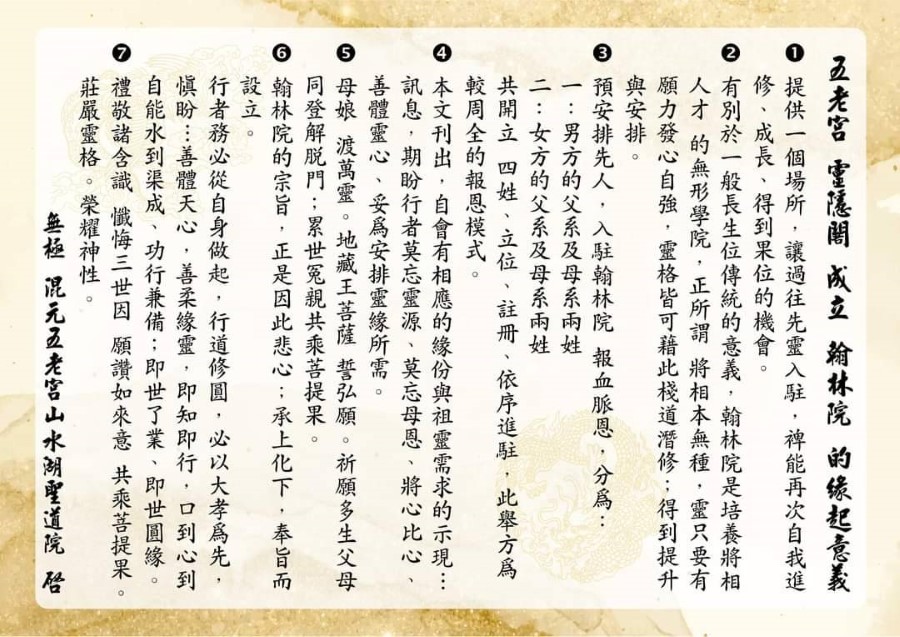 五老宮 靈隱閣 成立 翰林院 的緣起意義
❶
提供一個場所，讓過往先靈入駐，裨能再次自我進
修、成長、得到果位的機會。
❷
有別於一般長生位傳統的意義，翰林院是培養將相
人才 的無形學院，正所謂 將相本無種，靈只要有
願力發心自強，靈格皆可藉此棧道潛修；得到提升
與安排。
❸
預安排先人，入駐翰林院 報血脈恩，分為：
一：男方的父系及母系兩姓
二：女方的父系及母系兩姓
共開立 四姓、立位、註冊、依序進駐，此舉方為
較周全的報恩模式。
❹
本文刊出，自會有相應的緣份與祖靈需求的示現…
訊息，期盼行者莫忘靈源、莫忘母恩、將心比心、
善體靈心、妥為安排靈緣所需。
❺
母娘 渡萬靈。地藏王菩薩 誓弘願。祈願多生父母
同登解脱門；累世冤親共乘菩提果。
❻
翰林院的宗旨，正是因此悲心；承上化下，奉旨而
設立。
行者務必從自身做起，行道修圓，必以大孝為先，
慎盼…善體天心，善柔緣靈，即知即行，口到心到
自能水到渠成、功行兼備；即世了業、即世圓緣。
❼
禮敬諸含識 懺悔三世因 願讚如來意 共乘菩提果。
莊嚴靈格。榮耀神性。
無極 混元五老宮山水湖聖道院 啓